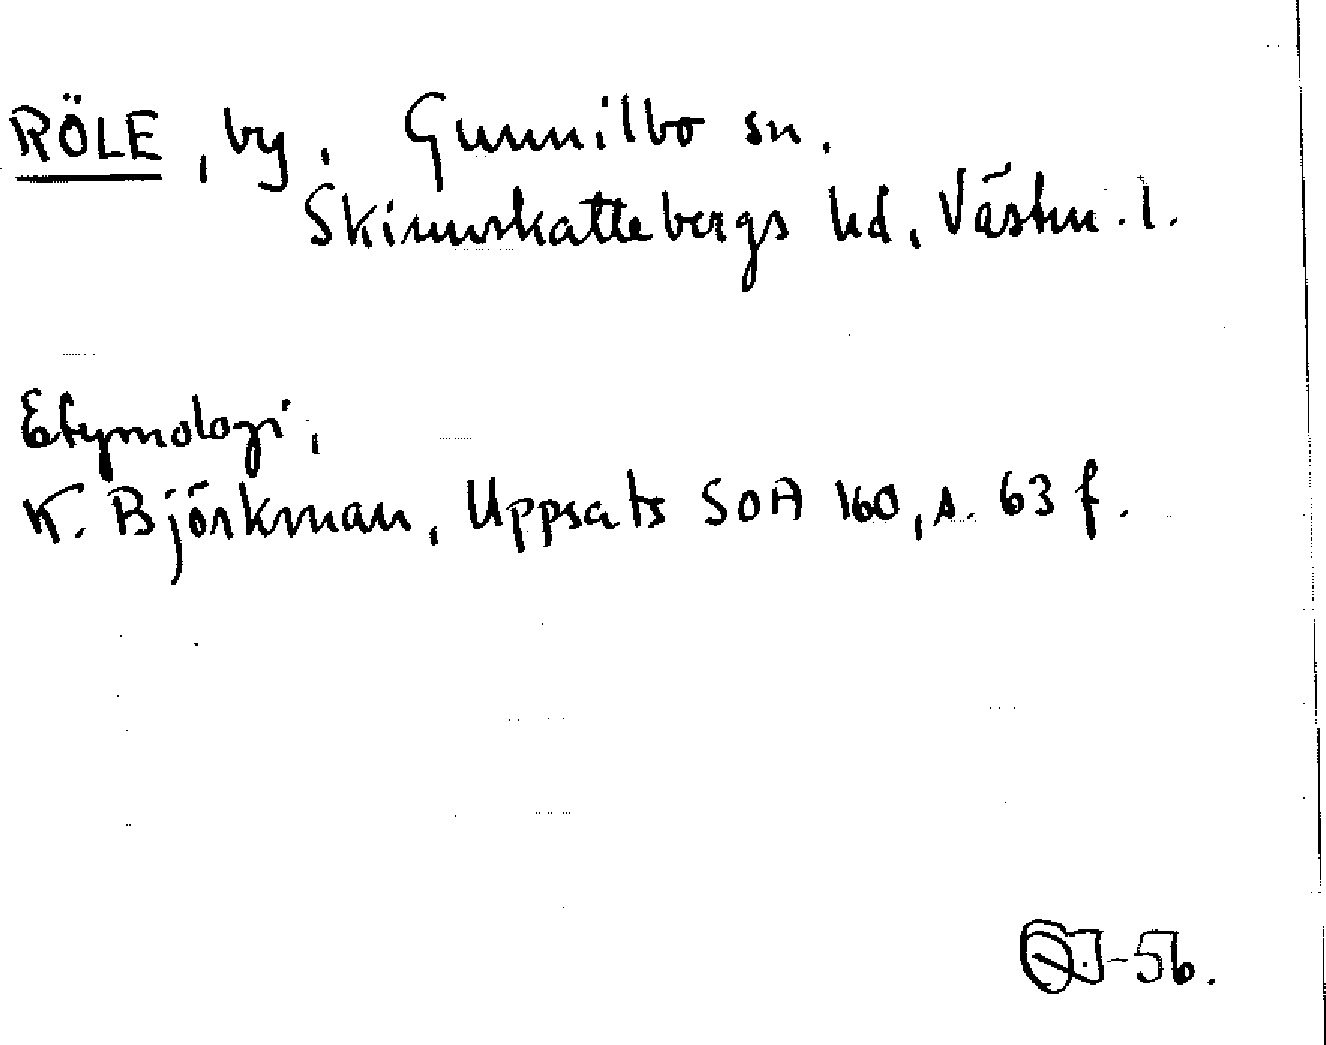 RÖLE, by, Gunnilbo sn.
Skinnskattebergs hd, Västm. l.
Etymologi,
K. Björkman, Uppsats SOA 160, s. 63 f.
-56.